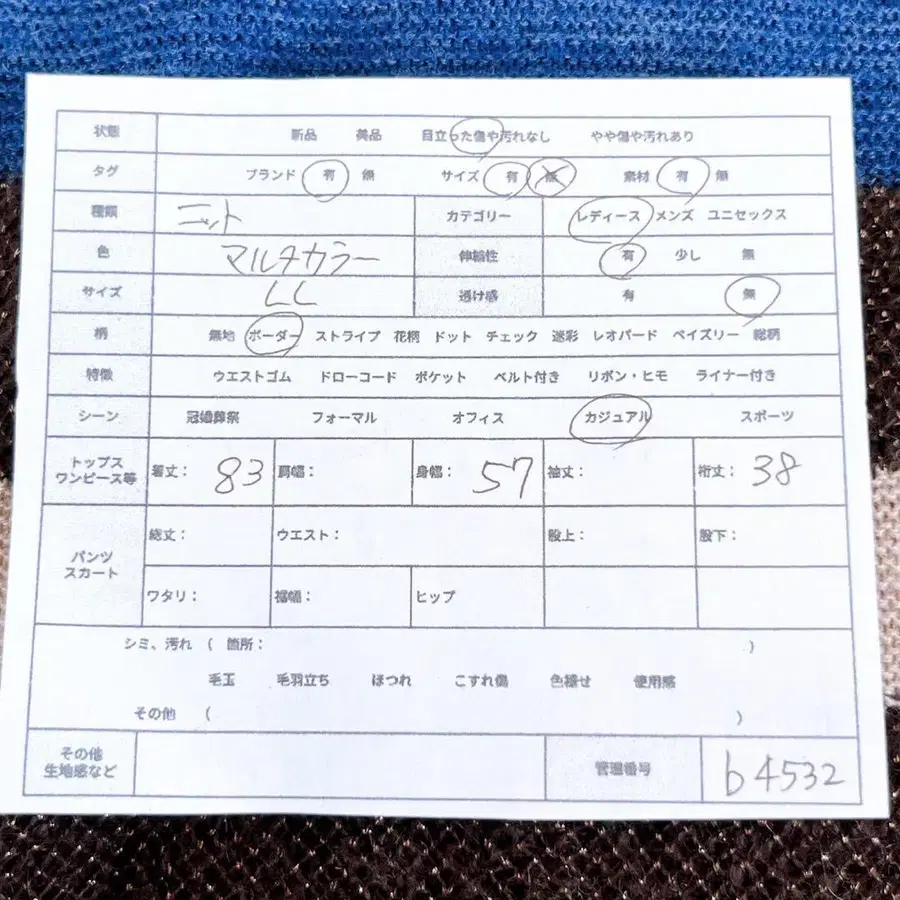 状態 新品 美品 目立った傷や汚れなし やや傷や汚れあり
タグ ブランド 有 無 サイズ 有 無 素材 有 無
種類 ニット カテゴリー レディース メンズ ユニセックス
色 マルチカラー 伸縮性 有 少し 無
サイズ LL 透け感 有 無
柄 無地 ボーダー ストライプ 花柄 ドット チェック 迷彩 レオパード ペイズリー 総柄
特徴 ウエストゴム ドローコード ポケット ベルト付き リボン・ヒモ ライナー付き
シーン 冠婚葬祭 フォーマル オフィス カジュアル スポーツ
トップス
ワンピース等 着丈: 83 肩幅: 身幅: 57 袖丈: 裄丈: 38
パンツ
スカート 総丈: ウエスト: 股上: 股下:
ワタリ: 裾幅: ヒップ
シミ、汚れ ( 箇所: )
毛玉 毛羽立ち ほつれ こすれ傷 色褪せ 使用感
その他 ( )
その他
生地感など 管理番号 b4532